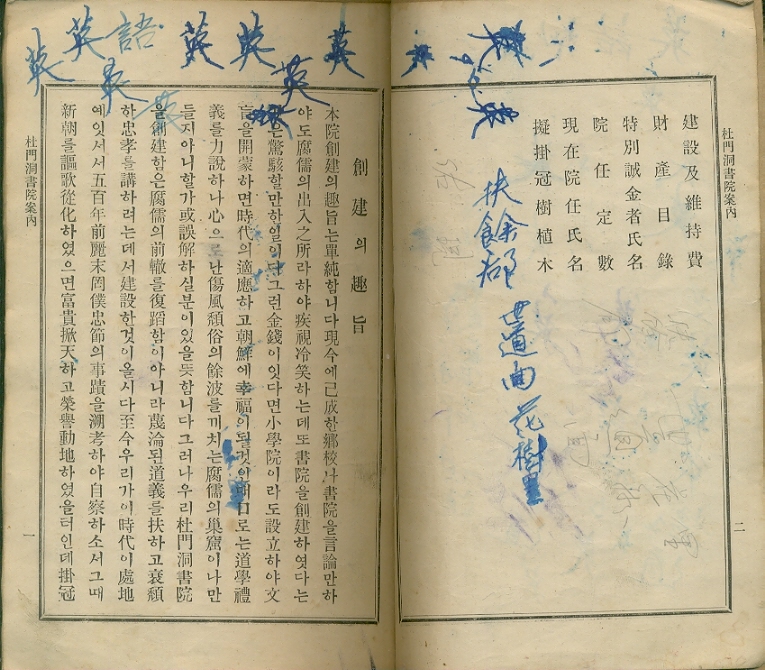 杜門洞書院案内
二
建設及維持費
財產目錄
特別誠金者氏名
院任定數
現在院任氏名
擬掛冠樹植木
扶餘郡
世道面花樹里
英 英 語 英 英 英 英
創建의趣旨
本院創建의趣旨는單純합니다現今에己成한鄕校나書院을言論만하
야도腐儒의出入之所라하야疾視冷笑하는데또書院을創建하엿다는
은驚駭할만하일이다그런金錢이잇다면小學院이라도設立하야文
盲을開蒙하면時代의適應하고朝鮮에幸福이될것이
口로는道學禮
義를力說하나心으로난傷風頹俗의餘波를끼치는腐儒의巢窟이나만
들지아니할가或誤解하실분이있을듯합니다그러나우리杜門洞書院
을創建함은腐儒의前轍를復蹈함이아니라蔑淪된道義를扶하고衰頹
하忠孝를講하려는데서建設한것이올시다至今우리가이時代이處地
에잇서서五百年前麗末罔僕忠節의事蹟을溯考하야自察하소서그때
新朝를謳歌從化하였으면富貴掀天하고榮譽動地하였을터인데掛冠
杜門洞書院案内
一